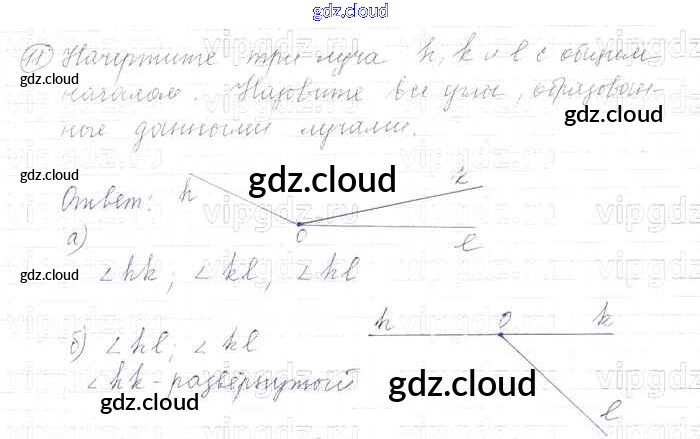 gdz.cloud
11) Начертите три луча h, k и l с общим
gdz.cloud
началом. Назовите все углы, образован-
gdz.cloud
ные данными лучами.
gdz.cloud
gdz.cloud
h
k
Ответ:
O
l
а)
gdz.cloud
∠hk; ∠kl; ∠hl
h O k
б) ∠hl; ∠kl
∠hk - развёрнутый
gdz.cloud
gdz.cloud
l